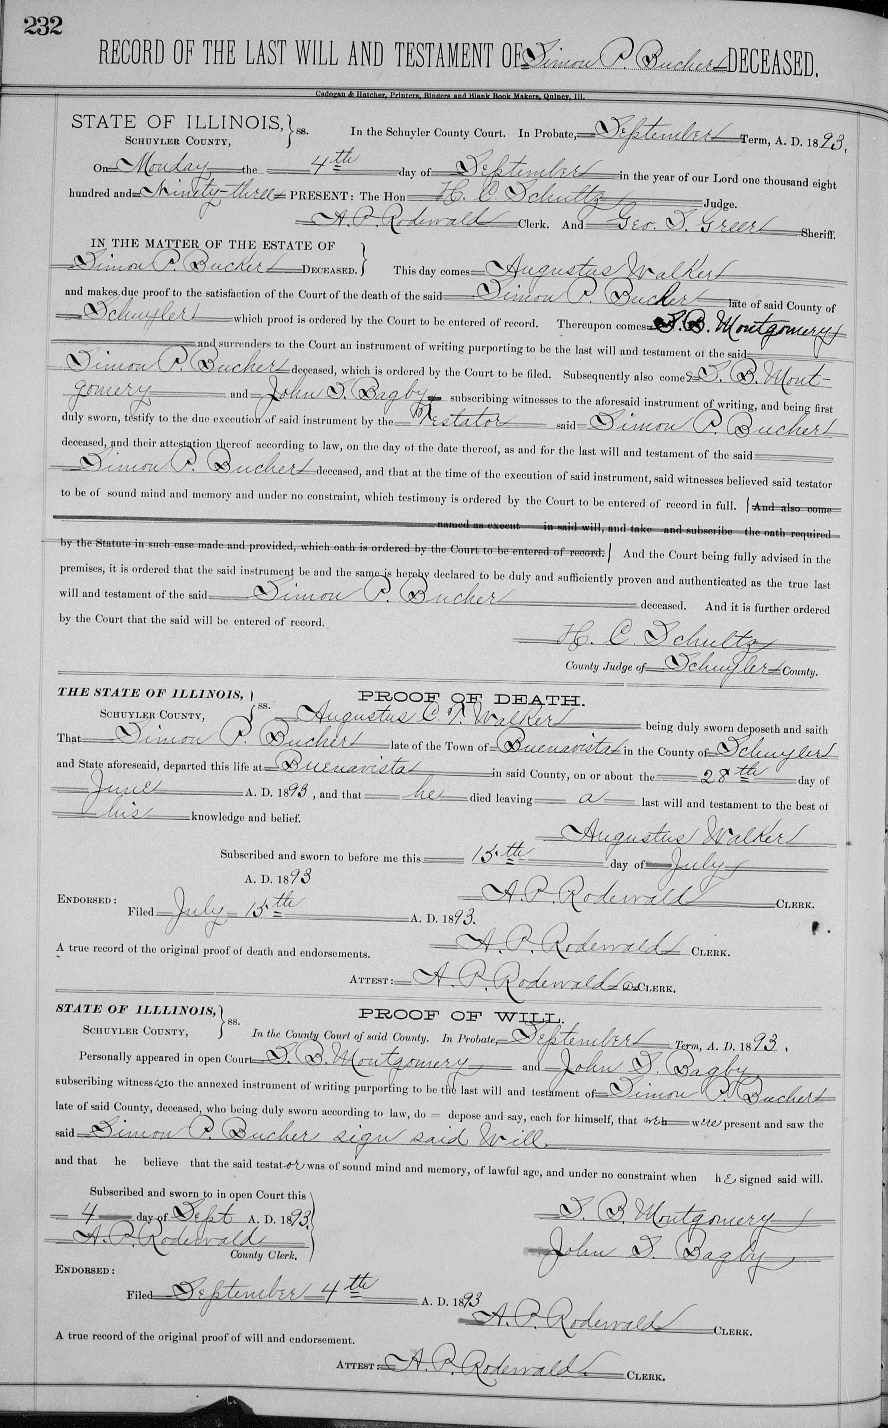 232
RECORD OF THE LAST WILL AND TESTAMENT OF Simon P. Bucher DECEASED.
Cadogan & Hatcher, Printers, Binders and Blank Book Makers, Quincy, Ill.
STATE OF ILLINOIS, } ss. In the Schuyler County Court. In Probate, September Term, A. D. 1893.
SCHUYLER COUNTY,
On Monday the 4th day of September in the year of our Lord one thousand eight
hundred and Ninety-three PRESENT: The Hon H. C. Schultz Judge.
A. P. Rodewald Clerk. And Geo. S. Greer Sheriff.
IN THE MATTER OF THE ESTATE OF
Simon P. Bucher DECEASED. } This day comes Augustus Walker
and makes due proof to the satisfaction of the Court of the death of the said Simon P. Bucher late of said County of
Schuyler which proof is ordered by the Court to be entered of record. Thereupon comes S. B. Montgomery
and surrenders to the Court an instrument of writing purporting to be the last will and testament of the said
Simon P. Bucher deceased, which is ordered by the Court to be filed. Subsequently also comes S. B. Mont-
gomery and John S. Bagby subscribing witnesses to the aforesaid instrument of writing, and being first
duly sworn, testify to the due execution of said instrument by the Testator said Simon P. Bucher
deceased, and their attestation thereof according to law, on the day of the date thereof, as and for the last will and testament of the said
Simon P. Bucher deceased, and that at the time of the execution of said instrument, said witnesses believed said testator
to be of sound mind and memory and under no constraint, which testimony is ordered by the Court to be entered of record in full. (And also come
named as execut in said will, and take and subscribe the oath required
by the Statute in such case made and provided, which oath is ordered by the Court to be entered of record.) And the Court being fully advised in the
premises, it is ordered that the said instrument be and the same is hereby declared to be duly and sufficiently proven and authenticated as the true last
will and testament of the said Simon P. Bucher deceased. And it is further ordered
by the Court that the said will be entered of record.
H. C. Schultz
County Judge of Schuyler County.
THE STATE OF ILLINOIS, } ss. PROOF OF DEATH.
SCHUYLER COUNTY, Augustus C. T. Walker being duly sworn deposeth and saith
That Simon P. Bucher late of the Town of Buenavista in the County of Schuyler
and State aforeseaid, departed this life at Buenavista in said County, on or about the 28th day of
June A. D. 1893, and that he died leaving a last will and testament to the best of
his knowledge and belief.
Augustus Walker
Subscribed and sworn to before me this 15th day of July
A. D. 1893
A. P. Rodewald CLERK.
ENDORSED:
Filed July 15th A. D. 1893.
A. P. Rodewald CLERK.
A true record of the original proof of death and endorsements.
ATTEST: A. P. Rodewald CLERK.
STATE OF ILLLINOIS, } ss. PROOF OF WILL.
SCHUYLER COUNTY, In the County Court of said County. In Probate, September Term, A. D. 1893.
Personally appeared in open Court S. B. Montgomery and John S. Bagby
subscribing witnesses to the annexed instrument of writing purporting to be the last will and testament of Simon P. Bucher
late of said County, deceased, who being duly sworn according to law, do depose and say, each for himself, that were present and saw the
said Simon P. Bucher sign said Will.
and that he believe that the said testator was of sound mind and memory, of lawful age, and under no constraint when he signed said will.
Subscribed and sworn to in open Court this
4 day of Sept A. D. 1893
A. P. Rodewald
County Clerk.
S. B. Montgomery
John S. Bagby
ENDORSED:
Filed September 4th A. D. 1893
A. P. Rodewald CLERK.
A true record of the original proof of will and endorsement.
ATTEST: A. P. Rodewald. CLERK.